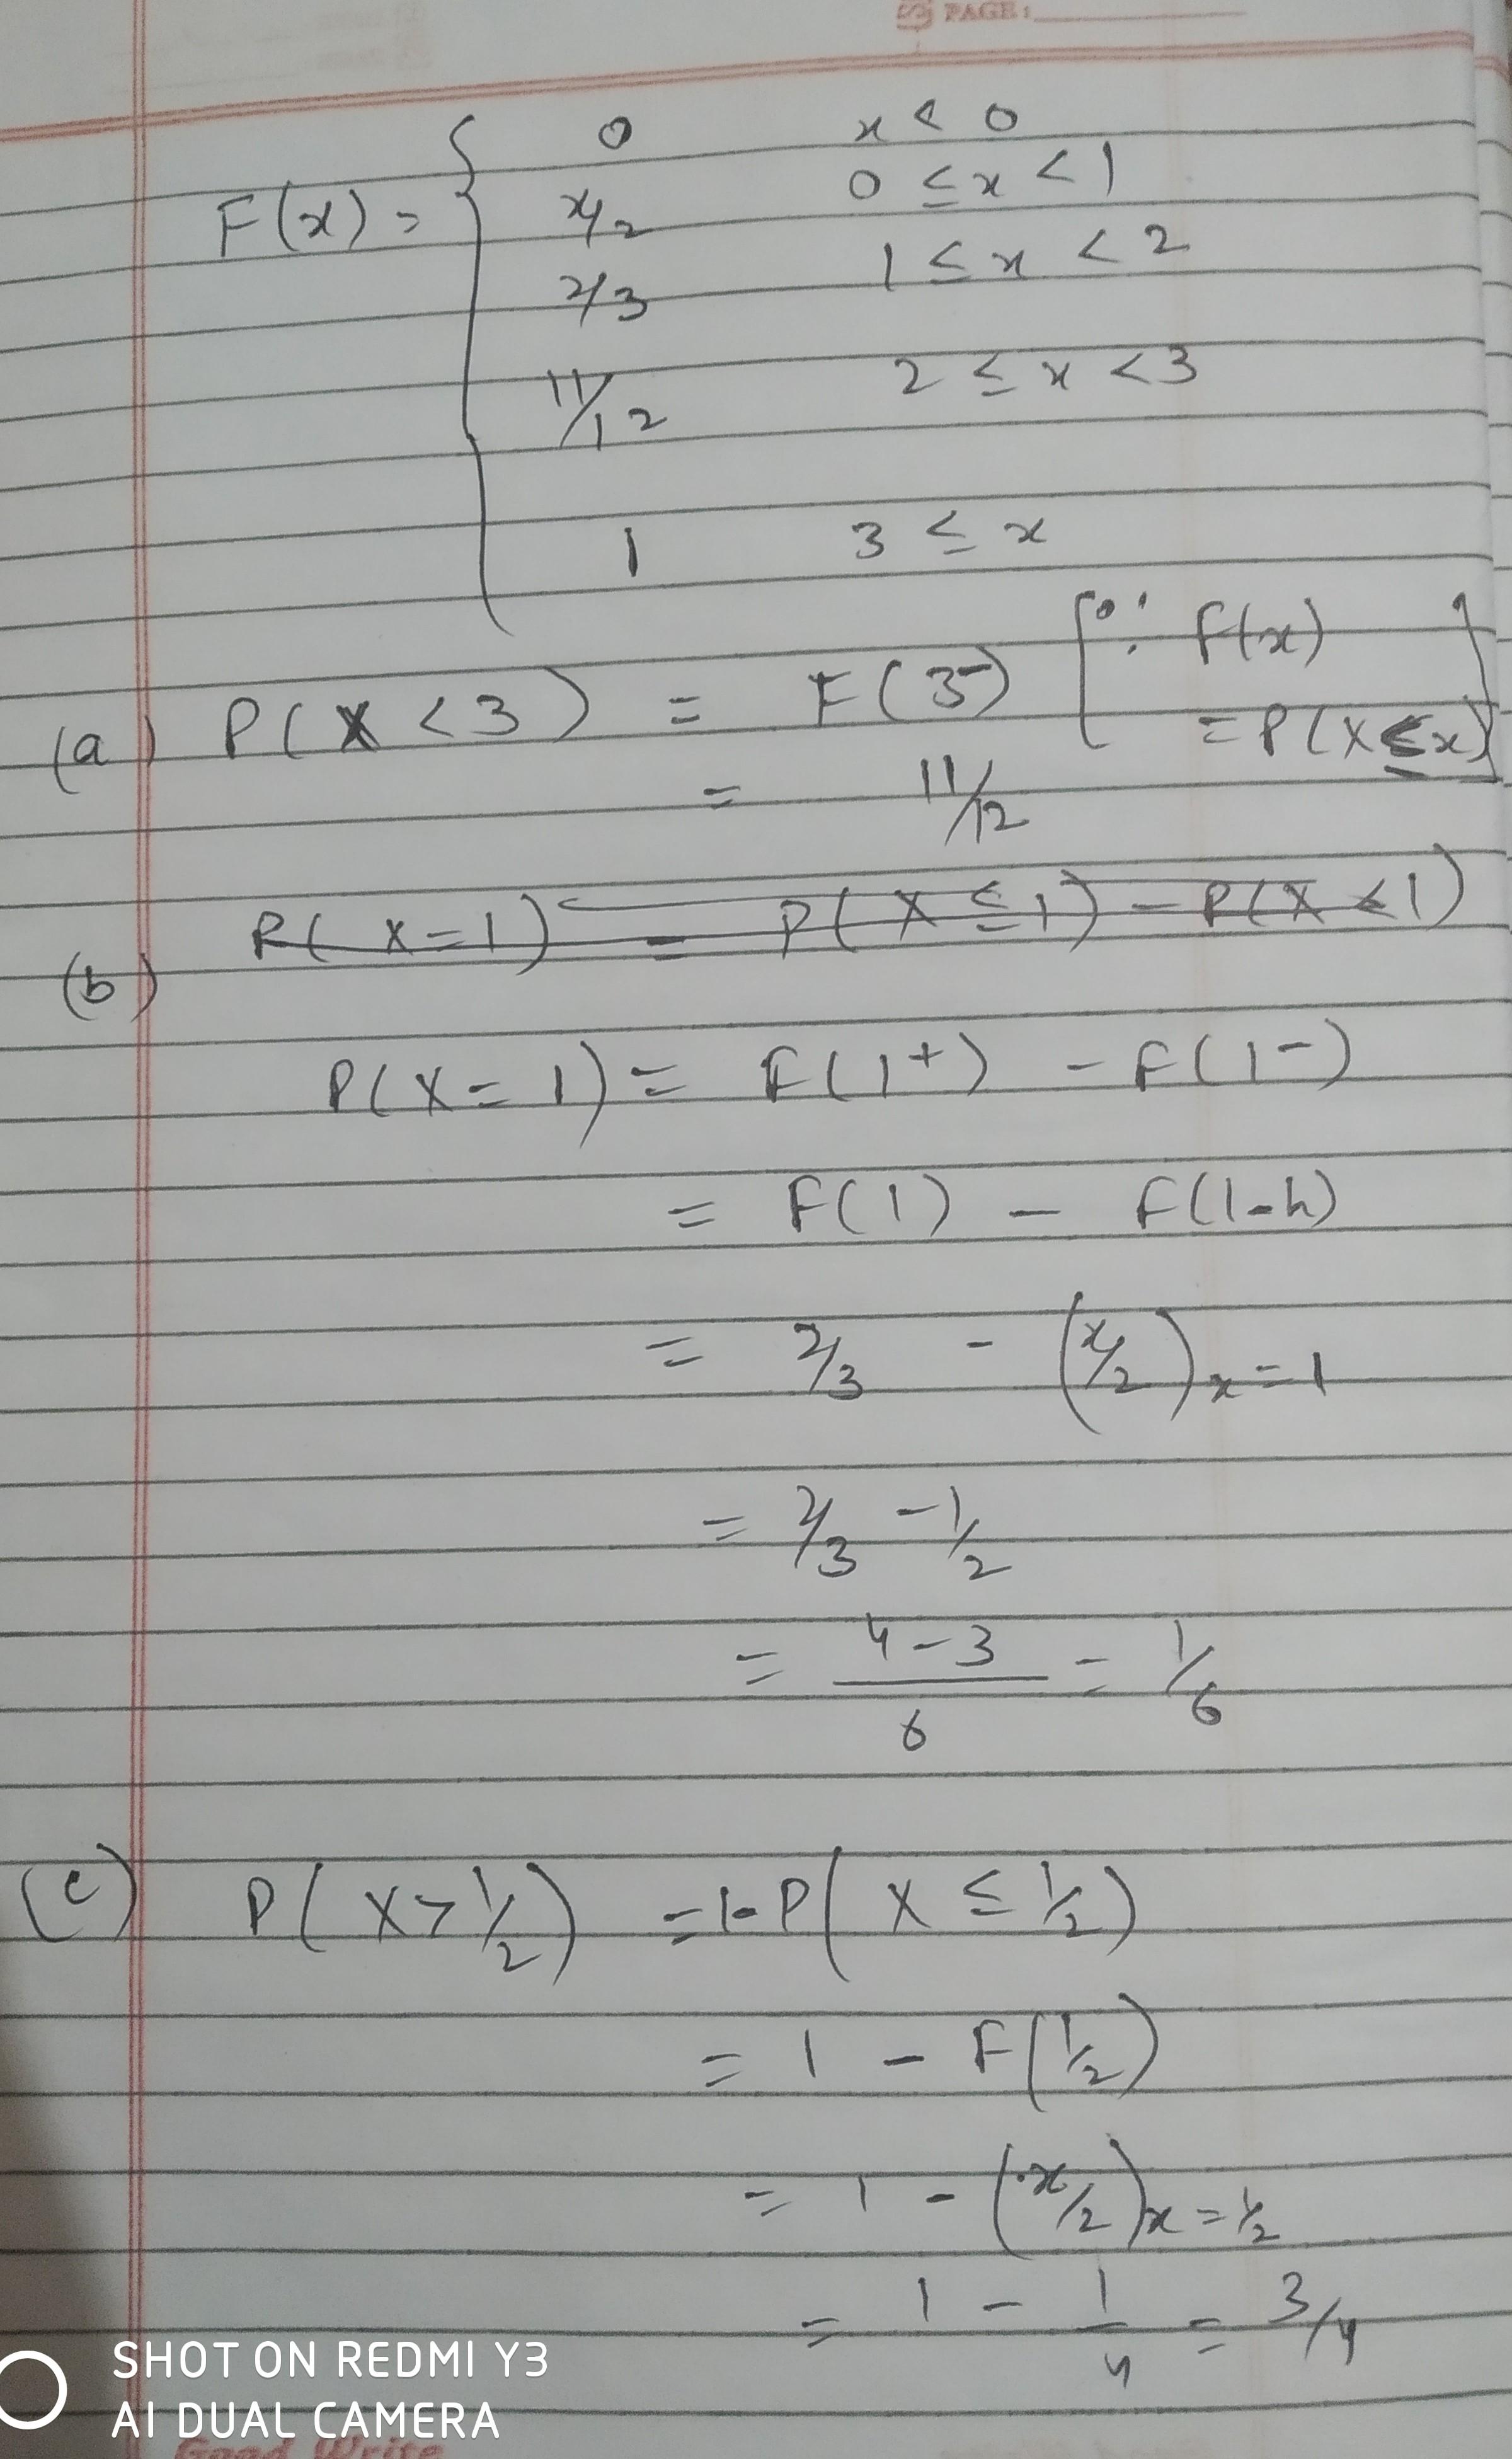 PAGE:
F(x) = { 0 x < 0
x/2 0 ≤ x < 1
2/3 1 ≤ x < 2
11/12 2 ≤ x < 3
1 3 ≤ x
(a) P(X < 3) = F(3⁻) [∵ F(x)
= P(X ≤ x)]
= 11/12
(b) P(X = 1) = P(X ≤ 1) - P(X < 1)
P(X = 1) = F(1⁺) - F(1⁻)
= F(1) - F(1-h)
= 2/3 - (x/2)x=1
= 2/3 - 1/2
= 4-3/6 = 1/6
(c) P(X > 1/2) = 1-P(X ≤ 1/2)
= 1 - F(1/2)
= 1 - (x/2)x=1/2
= 1 - 1/4 = 3/4
SHOT ON REDMI Y3
AI DUAL CAMERA
Good Write